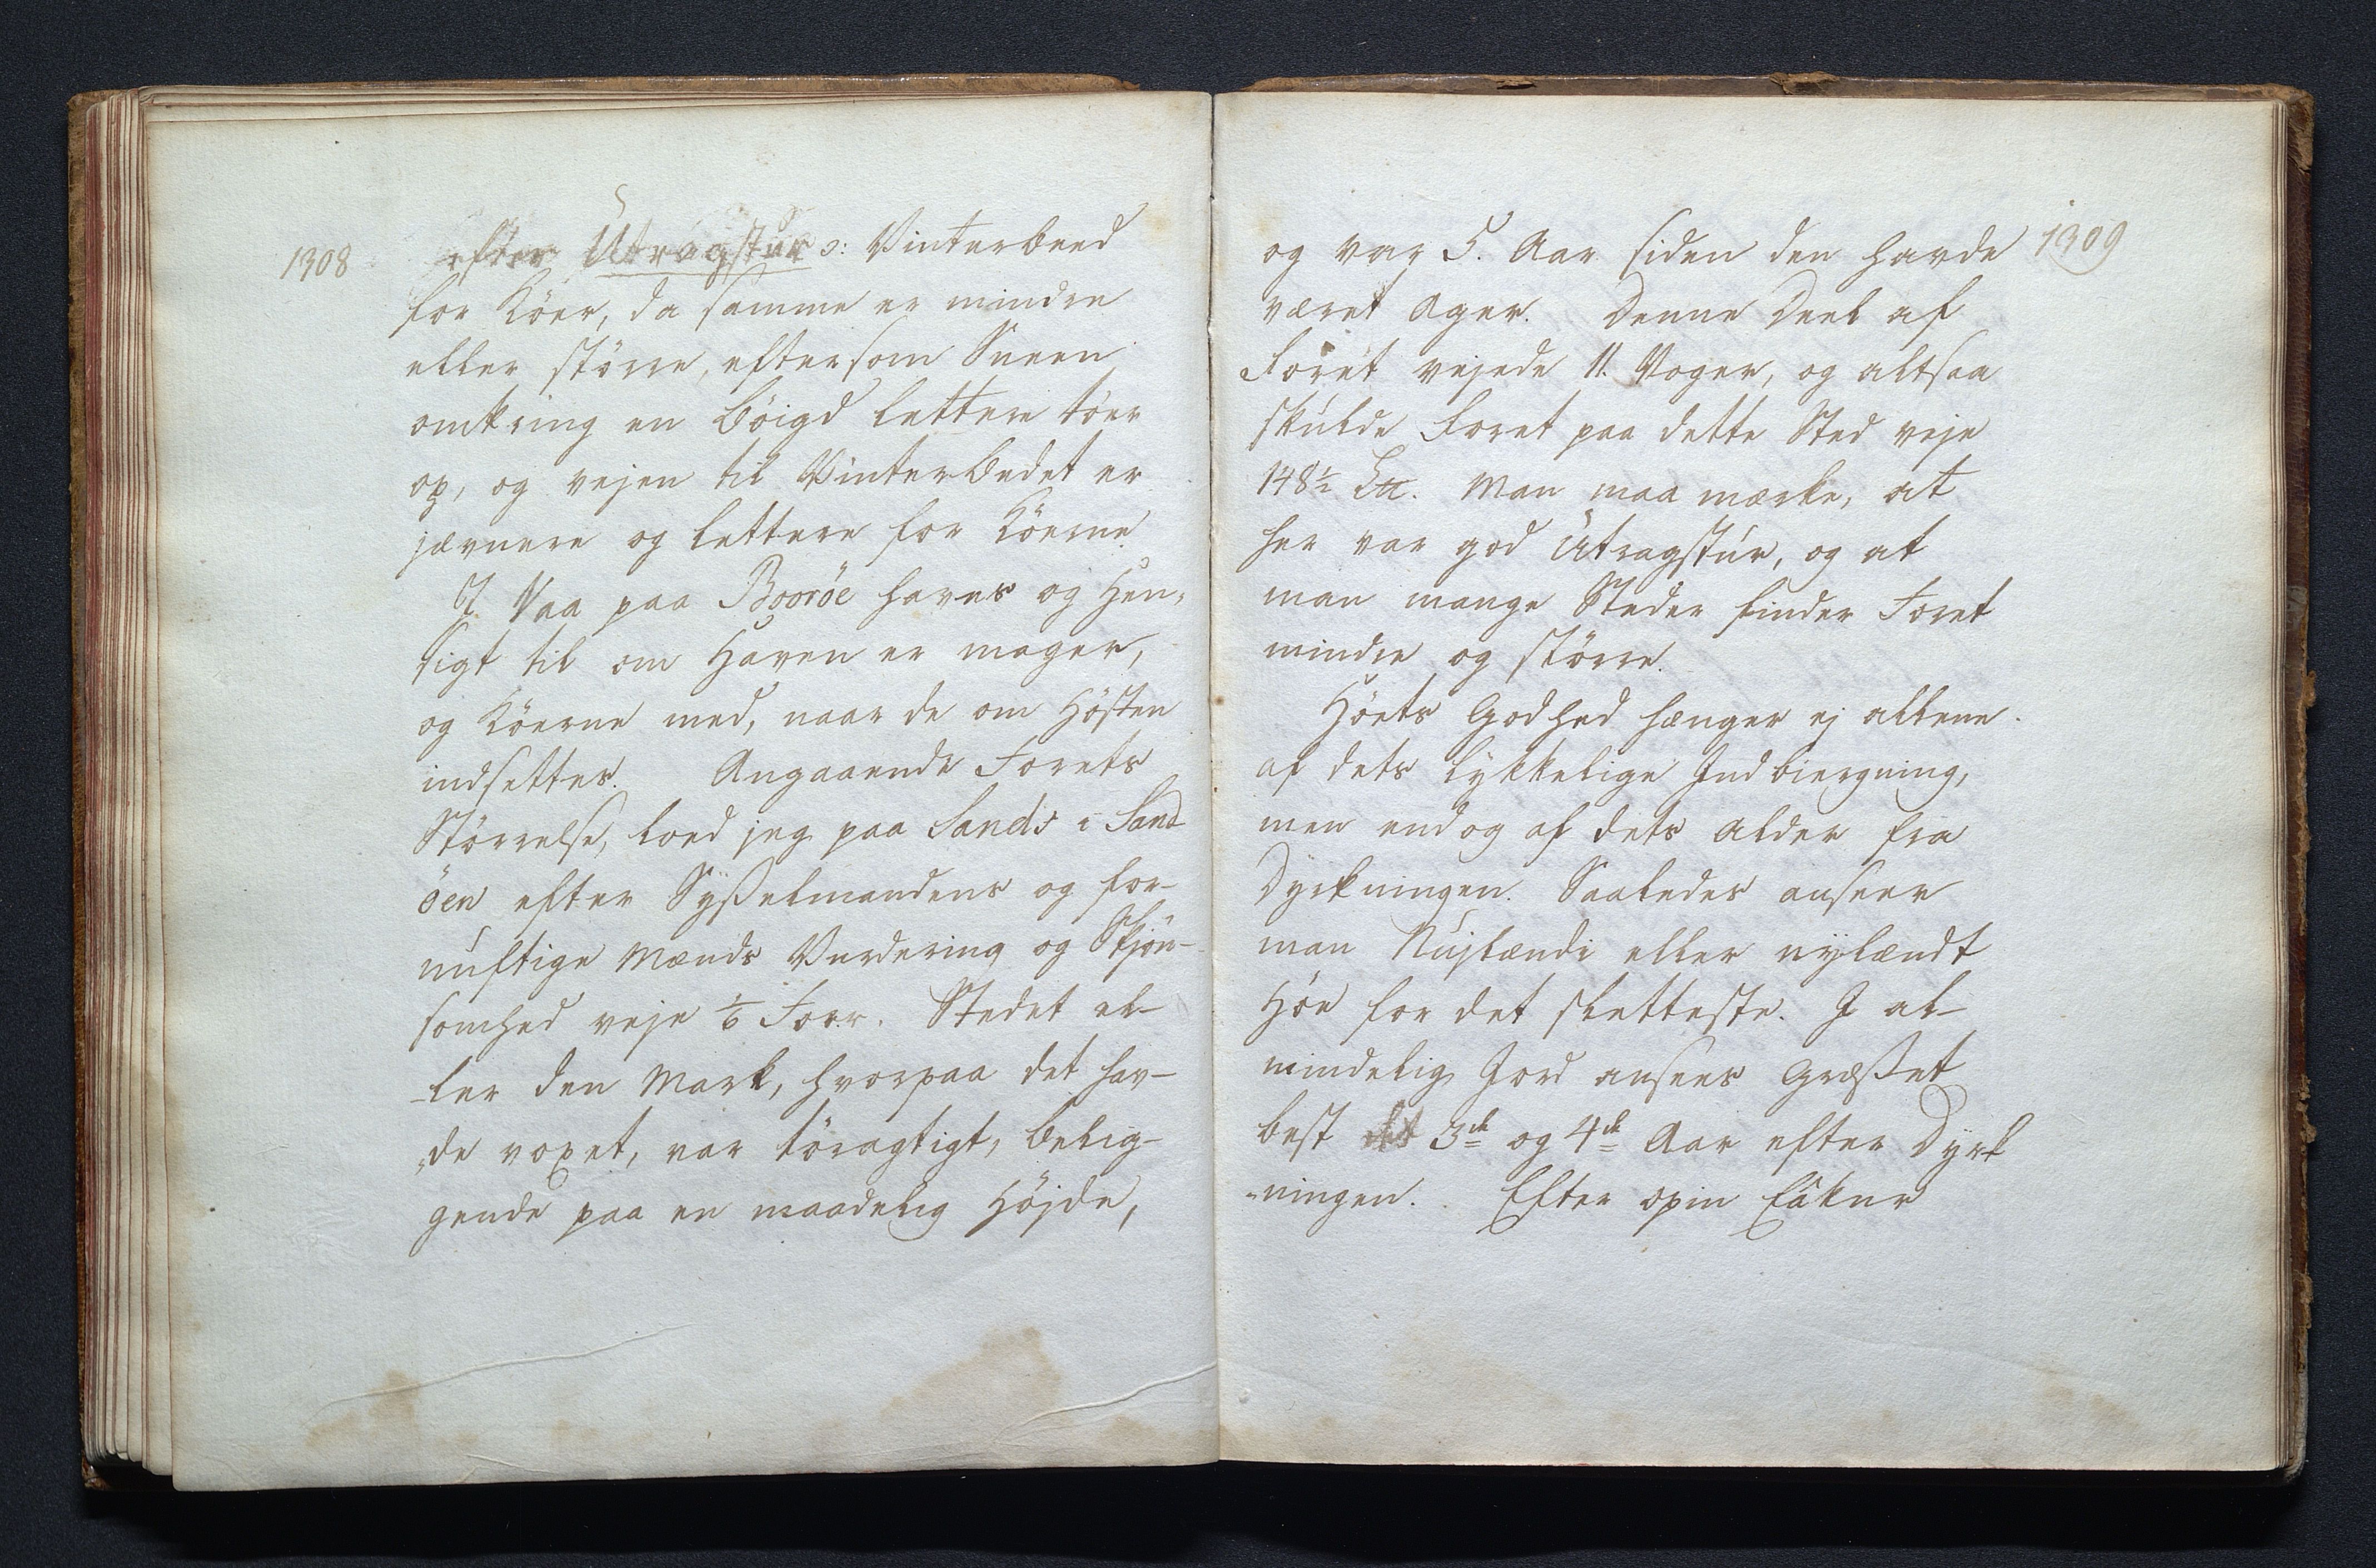 1308
efter Útragstúr ɔ: Vinterbeed
for Köer, da samme er mindre
eller större, eftersom Sneen
omkring en böigd lettere töer
op, og vejen til Vinterbedet er
jævnere og lettere for Köerne.
I Vaa paa Boröe haves og Hen-
sigt til om Haven er mager,
og Köerne med, naar de om Hösten
indsettes. Angaaende Forets
Störrelse, loed jeg paa Sands i Sand
öen efter Sysselmandens og for-
nuftige Mænds Vurdering og Skjön-
somhed veje 1/6 Foer. Stedet el-
-ler den Mark, hvorpaa det hav-
-de voxet, var töragtigt, belig-
gende paa en maadelig Höjde,
1309
og var 5. Aar siden den havde
været Ager. Denne Deel af
Foret vejede 11. Voger, og altsaa
skulde Foret paa dette Sted veje
148½ Lt. Man maa mærke, at
her var god Útragstúr, og at
man mange Steder finder Foret
mindre og större.
Höets Godhed hænger ej allene
af dets lykkelige Indbiergning,
men endog af dets Alder fra
Dyrkningen. Saaledes anseer
man Nujlændi eller nylændt
Höe for det sletteste. I al-
mindelig Jord ansees Græsset
best det 3de og 4de Aar efter Dyrk
-ningen. Efter opin